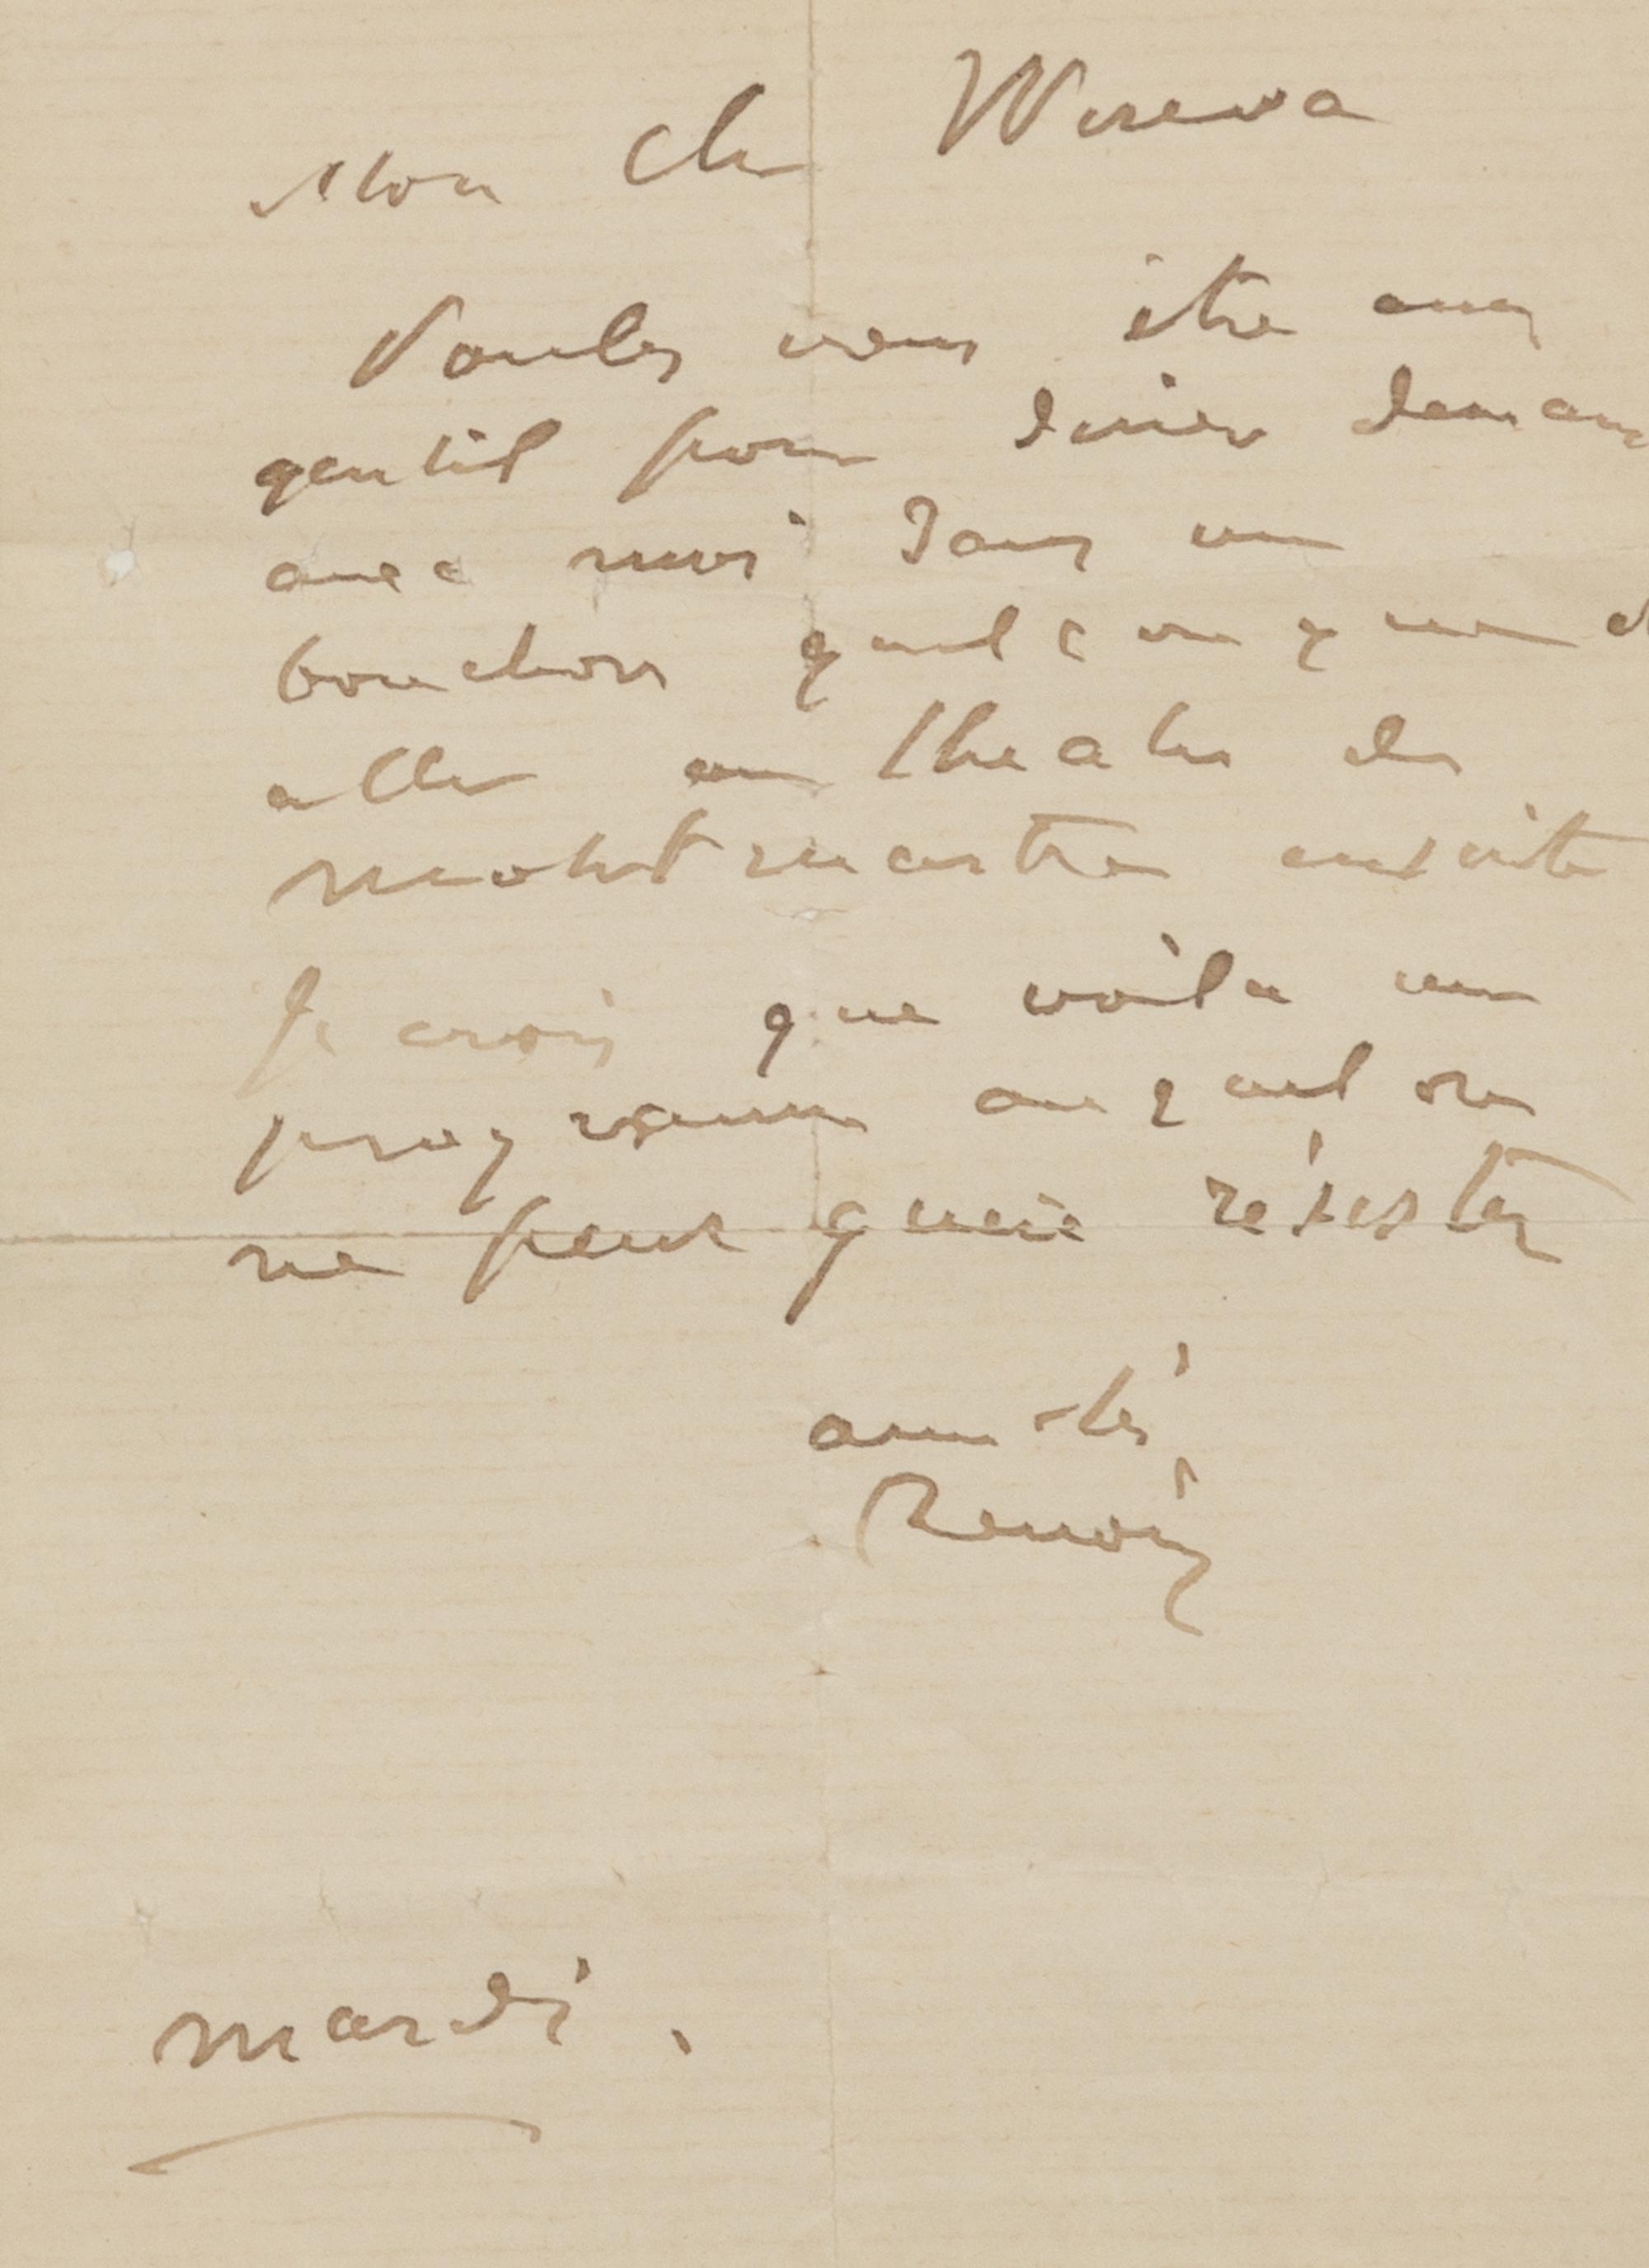 Mon Cher Wirewa
Voulez vous être assez
gentil pour diner demain
avec moi dans un
bouchon quelconque et
aller au theatre de
montmartre ensuite
Je crois que voila un
programme auquel on
ne peut guère résister
amitiés
Renoir
mardi.